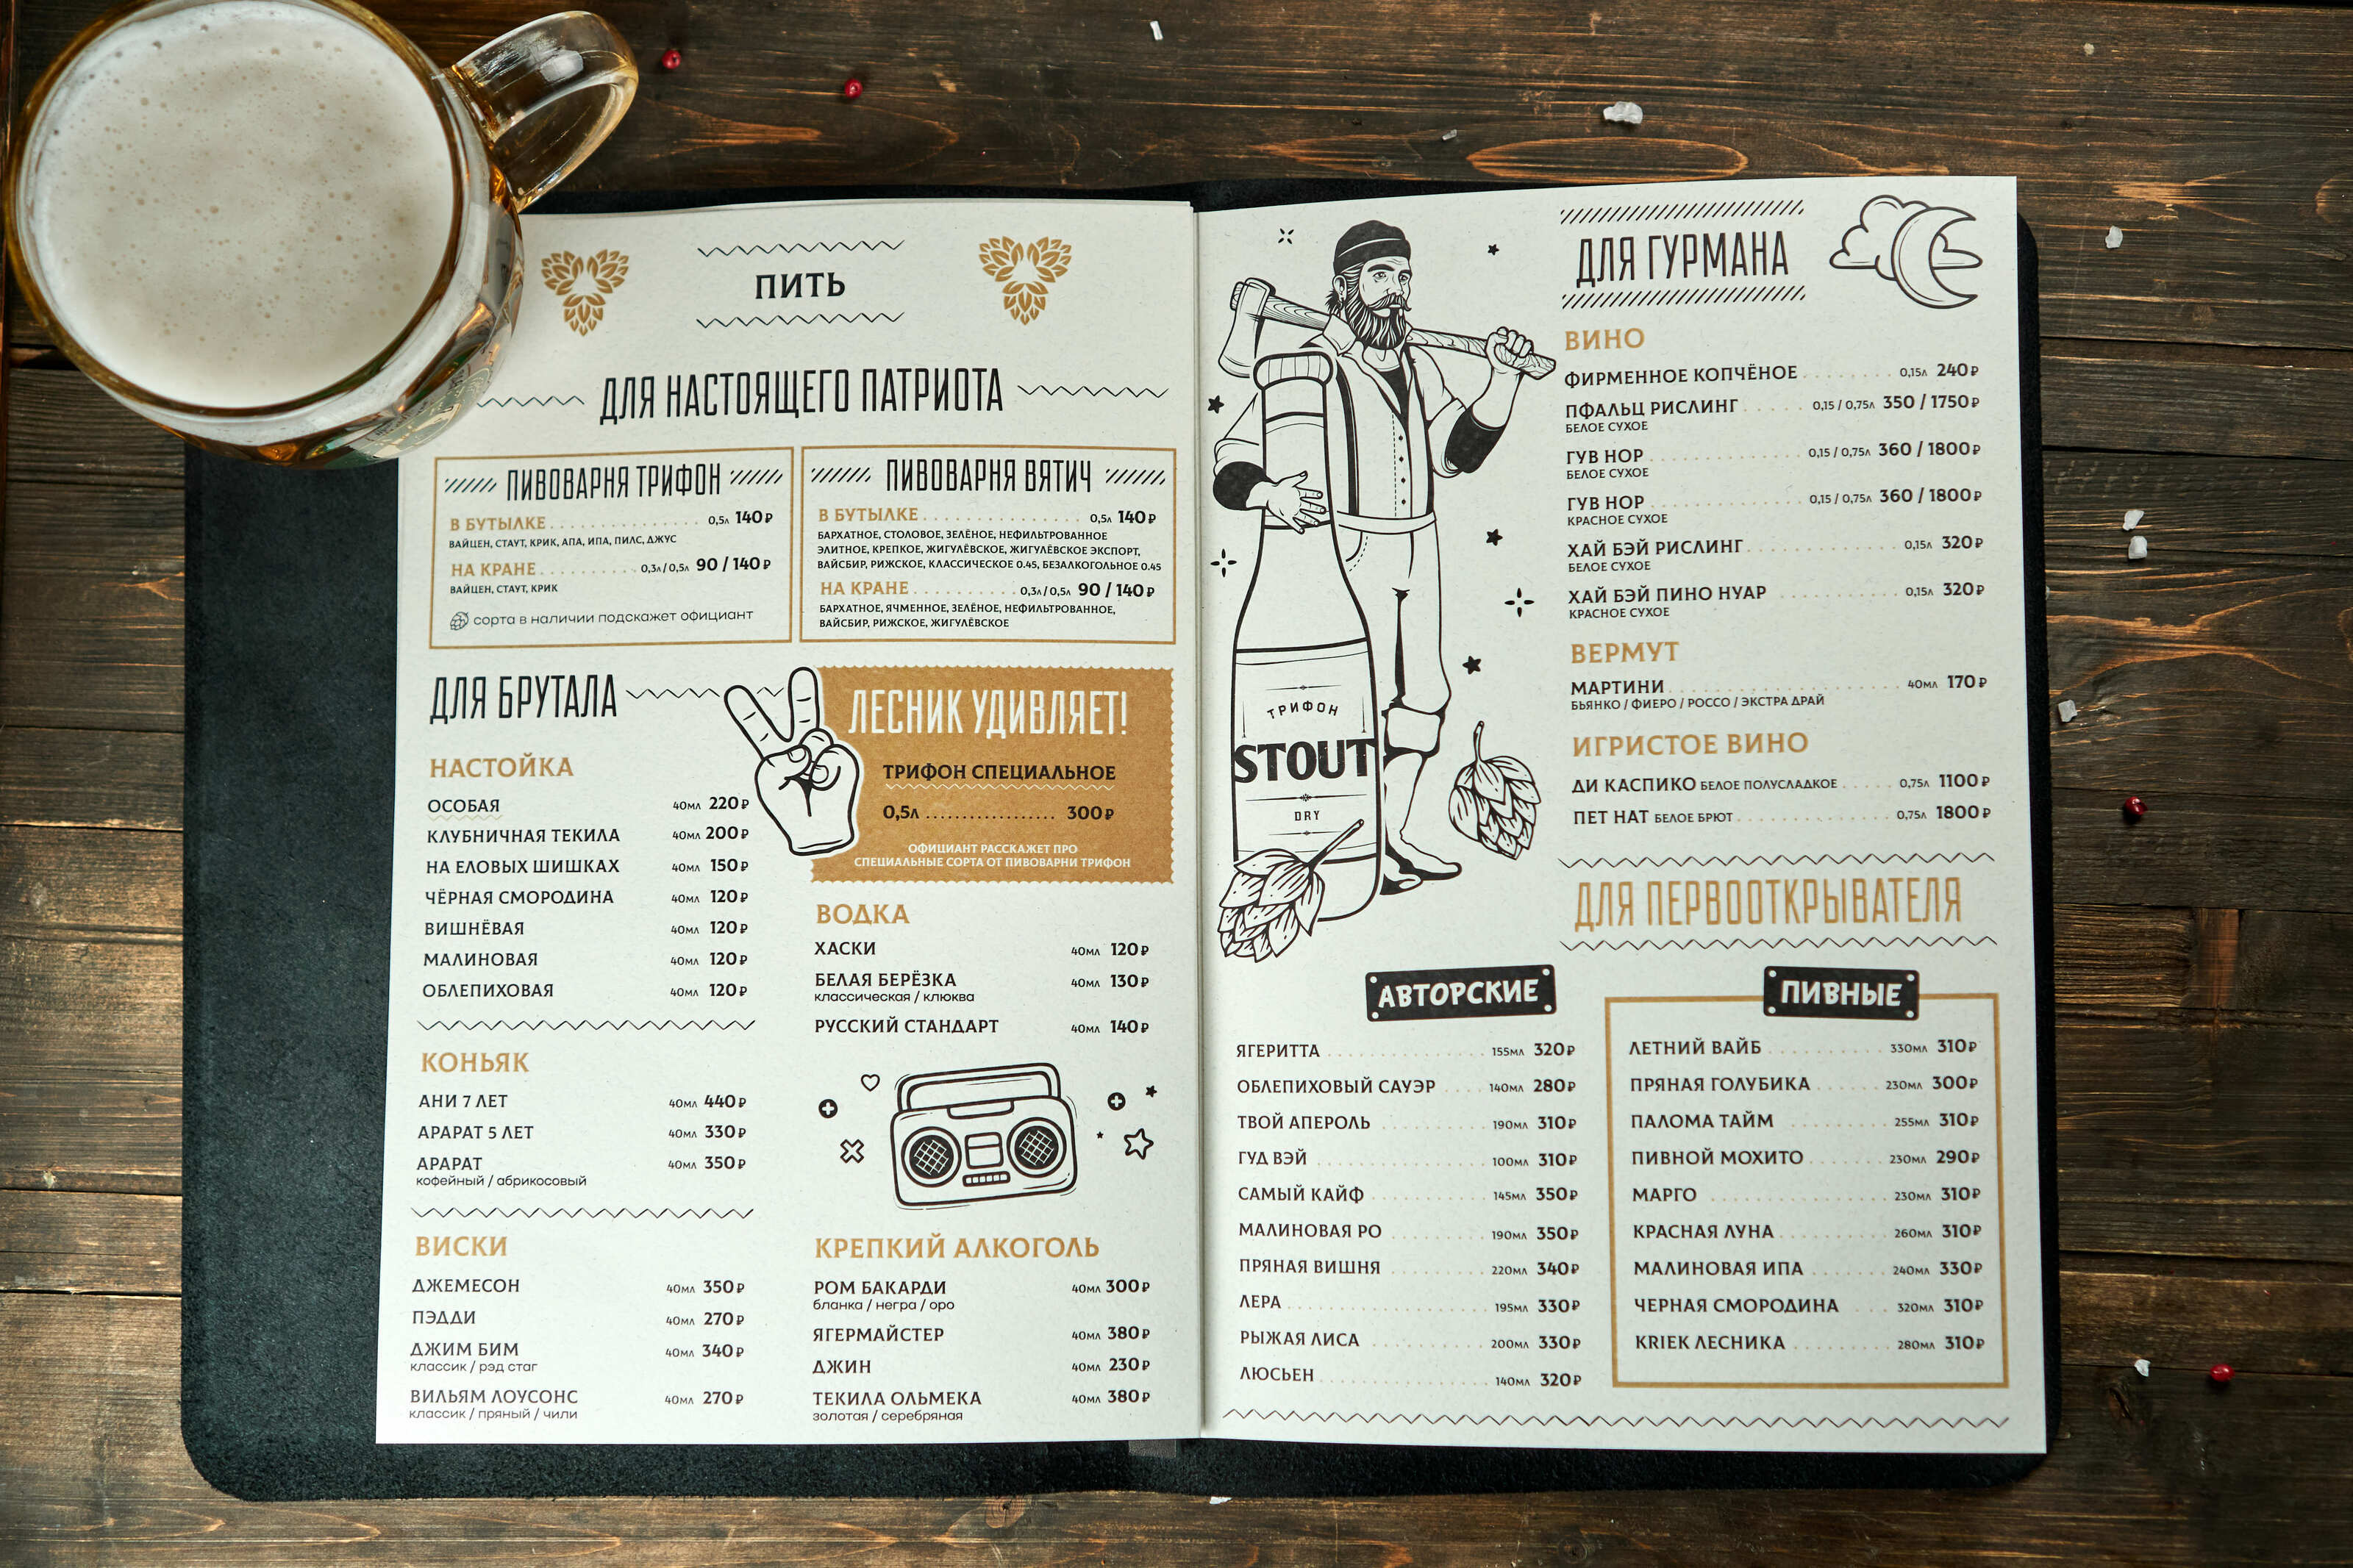 ПИТЬ
ДЛЯ НАСТОЯЩЕГО ПАТРИОТА
ПИВОВАРНЯ ТРИФОН
В БУТЫЛКЕ 0,5л 140₽
ВАЙЦЕН, СТАУТ, КРИК, АПА, ИПА, ПИЛС, ДЖУС
НА КРАНЕ 0,3л/0,5л 90 / 140₽
ВАЙЦЕН, СТАУТ, КРИК
сорта в наличии подскажет официант
ПИВОВАРНЯ ВЯТИЧ
В БУТЫЛКЕ 0,5л 140₽
БАРХАТНОЕ, СТОЛОВОЕ, ЗЕЛЁНОЕ, НЕФИЛЬТРОВАННОЕ
ЭЛИТНОЕ, КРЕПКОЕ, ЖИГУЛЁВСКОЕ, ЖИГУЛЁВСКОЕ ЭКСПОРТ,
ВАЙСБИР, РИЖСКОЕ, КЛАССИЧЕСКОЕ 0.45, БЕЗАЛКОГОЛЬНОЕ 0.45
НА КРАНЕ 0,3л/0,5л 90 / 140₽
БАРХАТНОЕ, ЯЧМЕННОЕ, ЗЕЛЁНОЕ, НЕФИЛЬТРОВАННОЕ,
ВАЙСБИР, РИЖСКОЕ, ЖИГУЛЁВСКОЕ
ДЛЯ БРУТАЛА
НАСТОЙКА
ОСОБАЯ 40мл 220₽
КЛУБНИЧНАЯ ТЕКИЛА 40мл 200₽
НА ЕЛОВЫХ ШИШКАХ 40мл 150₽
ЧЁРНАЯ СМОРОДИНА 40мл 120₽
ВИШНЁВАЯ 40мл 120₽
МАЛИНОВАЯ 40мл 120₽
ОБЛЕПИХОВАЯ 40мл 120₽
КОНЬЯК
АНИ 7 ЛЕТ 40мл 440₽
АРАРАТ 5 ЛЕТ 40мл 330₽
АРАРАТ 40мл 350₽
кофейный / абрикосовый
ВИСКИ
ДЖЕМЕСОН 40мл 350₽
ПЭДДИ 40мл 270₽
ДЖИМ БИМ 40мл 340₽
классик / рэд стаг
ВИЛЬЯМ ЛОУСОНС 40мл 270₽
классик / пряный / чили
ЛЕСНИК УДИВЛЯЕТ!
ТРИФОН СПЕЦИАЛЬНОЕ
0,5л 300₽
ОФИЦИАНТ РАССКАЖЕТ ПРО
СПЕЦИАЛЬНЫЕ СОРТА ОТ ПИВОВАРНИ ТРИФОН
ВОДКА
ХАСКИ 40мл 120₽
БЕЛАЯ БЕРЁЗКА 40мл 130₽
классическая / клюква
РУССКИЙ СТАНДАРТ 40мл 140₽
КРЕПКИЙ АЛКОГОЛЬ
РОМ БАКАРДИ 40мл 300₽
бланка / негра / оро
ЯГЕРМАЙСТЕР 40мл 380₽
ДЖИН 40мл 230₽
ТЕКИЛА ОЛЬМЕКА 40мл 380₽
золотая / серебряная
ТРИФОН
STOUT
DRY
ДЛЯ ГУРМАНА
ВИНО
ФИРМЕННОЕ КОПЧЁНОЕ 0,15л 240₽
ПФАЛЬЦ РИСЛИНГ 0,15 / 0,75л 350 / 1750₽
БЕЛОЕ СУХОЕ
ГУВ НОР 0,15 / 0,75л 360 / 1800₽
БЕЛОЕ СУХОЕ
ГУВ НОР 0,15 / 0,75л 360 / 1800₽
КРАСНОЕ СУХОЕ
ХАЙ БЭЙ РИСЛИНГ 0,15л 320₽
БЕЛОЕ СУХОЕ
ХАЙ БЭЙ ПИНО НУАР 0,15л 320₽
КРАСНОЕ СУХОЕ
ВЕРМУТ
МАРТИНИ 40мл 170₽
БЬЯНКО / ФИЕРО / РОССО / ЭКСТРА ДРАЙ
ИГРИСТОЕ ВИНО
ДИ КАСПИКО БЕЛОЕ ПОЛУСЛАДКОЕ 0,75л 1100₽
ПЕТ НАТ БЕЛОЕ БРЮТ 0,75л 1800₽
ДЛЯ ПЕРВООТКРЫВАТЕЛЯ
АВТОРСКИЕ
ЯГЕРИТТА 155мл 320₽
ОБЛЕПИХОВЫЙ САУЭР 140мл 280₽
ТВОЙ АПЕРОЛЬ 190мл 310₽
ГУД ВЭЙ 100мл 310₽
САМЫЙ КАЙФ 145мл 350₽
МАЛИНОВАЯ РО 190мл 350₽
ПРЯНАЯ ВИШНЯ 220мл 340₽
ЛЕРА 195мл 330₽
РЫЖАЯ ЛИСА 200мл 330₽
ЛЮСЬЕН 140мл 320₽
ПИВНЫЕ
ЛЕТНИЙ ВАЙБ 330мл 310₽
ПРЯНАЯ ГОЛУБИКА 230мл 300₽
ПАЛОМА ТАЙМ 255мл 310₽
ПИВНОЙ МОХИТО 230мл 290₽
МАРГО 230мл 310₽
КРАСНАЯ ЛУНА 260мл 310₽
МАЛИНОВАЯ ИПА 240мл 330₽
ЧЕРНАЯ СМОРОДИНА 320мл 310₽
KRIEK ЛЕСНИКА 280мл 310₽